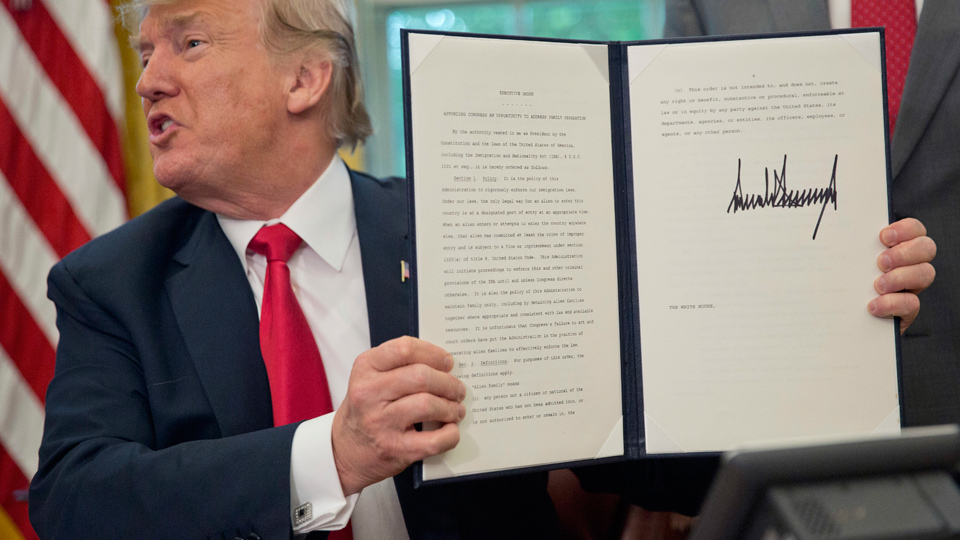 EXECUTIVE ORDER
- - - - - - -
AFFORDING CONGRESS AN OPPORTUNITY TO ADDRESS FAMILY SEPARATION
By the authority vested in me as President by the
Constitution and the laws of the United States of America,
including the Immigration and Nationality Act (INA), 8 U.S.C.
1101 et seq., it is hereby ordered as follows:
Section 1. Policy. It is the policy of this
Administration to rigorously enforce our immigration laws.
Under our laws, the only legal way for an alien to enter this
country is at a designated port of entry at an appropriate time.
When an alien enters or attempts to enter the country anywhere
else, that alien has committed at least the crime of improper
entry and is subject to a fine or imprisonment under section
1325(a) of title 8, United States Code. This Administration
will initiate proceedings to enforce this and other criminal
provisions of the INA until and unless Congress directs
otherwise. It is also the policy of this Administration to
maintain family unity, including by detaining alien families
together where appropriate and consistent with law and available
resources. It is unfortunate that Congress's failure to act and
court orders have put the Administration in the position of
separating alien families to effectively enforce the law.
Sec. 2. Definitions. For purposes of this order, the
following definitions apply:
"Alien family" means
(i) any person not a citizen or national of the
United States who has not been admitted into, or
is not authorized to enter or remain in, the
4
This order is not intended to, and does not, create
any right or benefit, substantive or procedural, enforceable at
law or in equity by any party against the United States, its
departments, agencies, or entities, its officers, employees, or
agents, or any other person.
THE WHITE HOUSE,